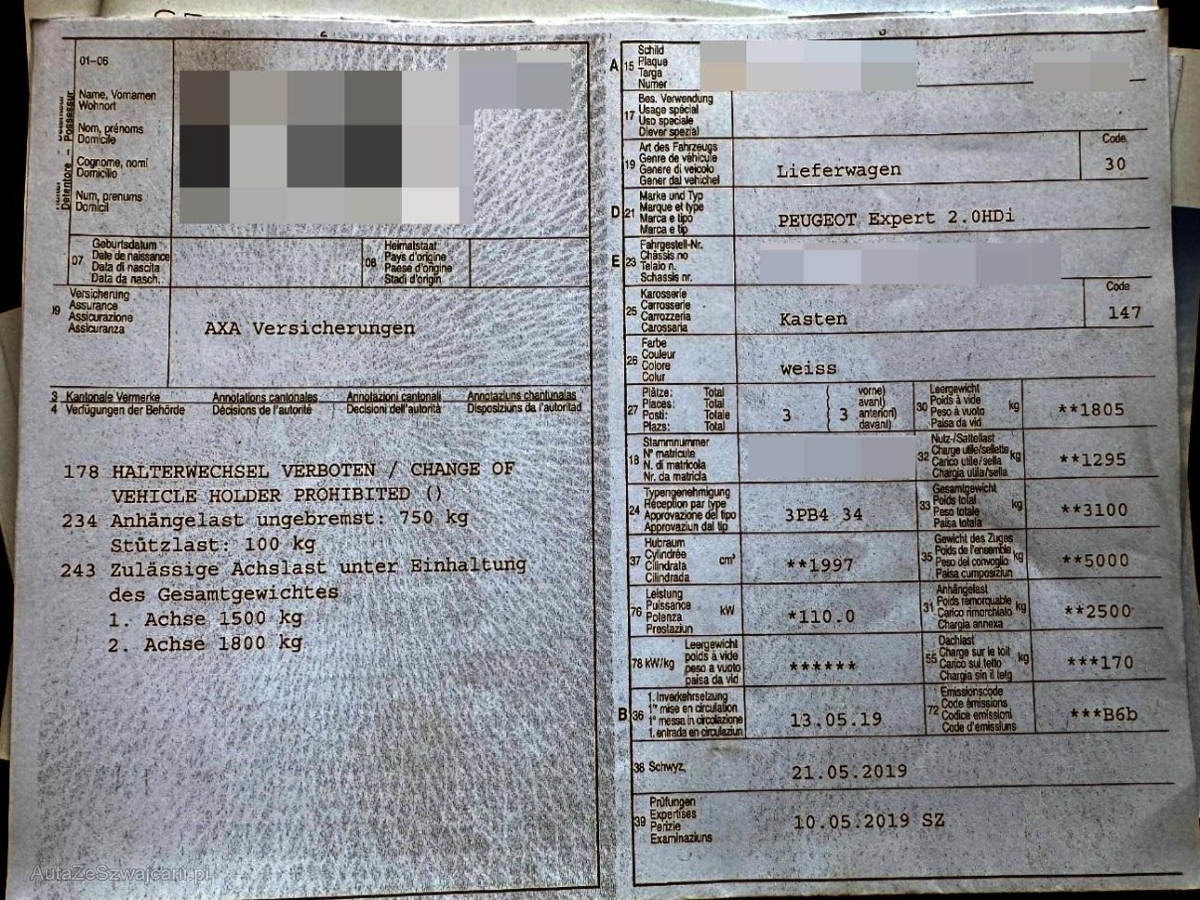 01-06
Name, Vornamen
Wohnort
Nom, prénoms
Domicile
Cognome, nomi
Domicilio
Num, prenums
Domicil
Détentore - Possessur
07
Geburtsdatum
Date de naissance
Data di nascita
Data da nasch.
08
Heimatstaat
Pays d'origine
Paese d'origine
Stadi d'origin
09
Versicherung
Assurance
Assicurazione
Assicuranza
AXA Versicherungen
3 Kantonale Vermerke Annotations cantonales Annotazioni cantonali Annotaziuns chantunalas
4 Verfügungen der Behörde Décisions de l'autorité Decisioni dell'autorità Disposiziuns da l'autoritad
178 HALTERWECHSEL VERBOTEN / CHANGE OF
VEHICLE HOLDER PROHIBITED ()
234 Anhängelast ungebremst: 750 kg
Stützlast: 100 kg
243 Zulässige Achslast unter Einhaltung
des Gesamtgewichtes
1. Achse 1500 kg
2. Achse 1800 kg
A 15
Schild
Plaque
Targa
Numer
17
Bes. Verwendung
Usage spécial
Uso speciale
Diever spezial
19
Art des Fahrzeugs
Genre de véhicule
Genere di veicolo
Gener dal vehichel
Lieferwagen
Code
30
D 21
Marke und Typ
Marque et type
Marca e tipo
Marca e tip
PEUGEOT Expert 2.0HDi
E 23
Fahrgestell-Nr.
Châssis no
Telaio n.
Schassis nr.
25
Karosserie
Carrosserie
Carrozzeria
Carossaria
Kasten
Code
147
26
Farbe
Couleur
Colore
Colur
weiss
27
Plätze: Total
Places: Total
Posti: Totale
Plazs: Total
3
( vorne)
( avant)
3 anteriori)
davant)
30
Leergewicht
Poids à vide
Peso a vuoto
Paisa da vid
kg
**1805
18
Stammnummer
N° matricule
N. di matricola
Nr. da matricla
32
Nutz-/Sattellast
Charge utile/sellette
Carico utile/sella
Chargia utila/sella
kg
**1295
24
Typengenehmigung
Réception par type
Approvazione del tipo
Approvaziun dal tip
3PB4 34
33
Gesamtgewicht
Poids total
Peso totale
Paisa totala
kg
**3100
37
Hubraum
Cylindrée
Cilindrata
Cilindrada
cm³
**1997
35
Gewicht des Zuges
Poids de l'ensemble
Peso del convoglio
Paisa cumposiziun
kg
**5000
76
Leistung
Puissance
Potenza
Prestaziun
kW
*110.0
31
Anhängelast
Poids remorquable
Carico rimorchiato
Chargia annexa
kg
**2500
78 kW/kg
Leergewicht
poids à vide
peso a vuoto
paisa da vid
******
55
Dachlast
Charge sur le toit
Carico sul tetto
Chargia sin il tetg
kg
***170
B 36
1. Inverkehrsetzung
1re mise en circulation
1a messa in circolazione
1. entrada en circulaziun
13.05.19
72
Emissionscode
Code émissions
Codice emissioni
Code d'emissiuns
***B6b
38 Schwyz,
21.05.2019
39
Prüfungen
Expertises
Perizie
Examinaziuns
10.05.2019 SZ
AutaZeSzwajcarii.pl